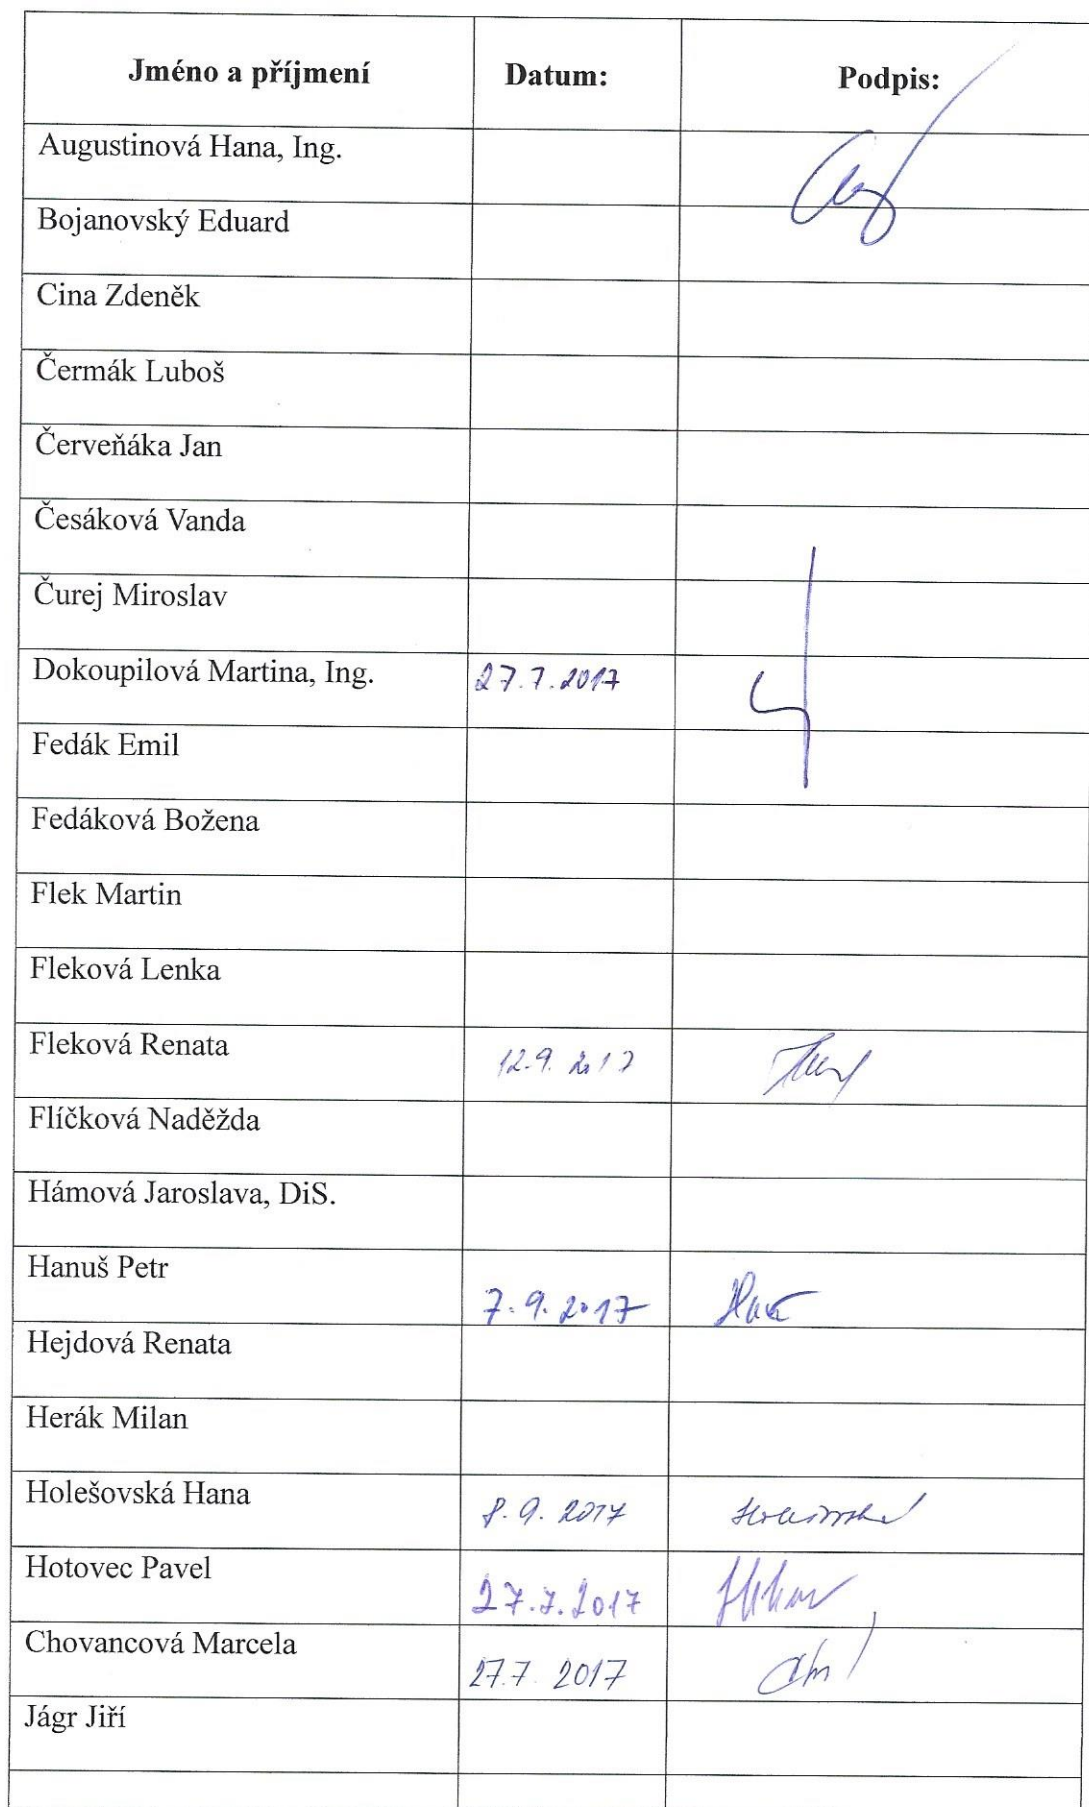 Jméno a příjmení Datum: Podpis:
Augustinová Hana, Ing.
Bojanovský Eduard
Cina Zdeněk
Čermák Luboš
Červeňáka Jan
Česáková Vanda
Čurej Miroslav
Dokoupilová Martina, Ing. 27.7.2017
Fedák Emil
Fedáková Božena
Flek Martin
Fleková Lenka
Fleková Renata 12.9. 2017
Flíčková Naděžda
Hámová Jaroslava, DiS.
Hanuš Petr 7.9.2017
Hejdová Renata
Herák Milan
Holešovská Hana 8.9. 2017
Hotovec Pavel 27.7.2017
Chovancová Marcela 27.7. 2017
Jágr Jiří